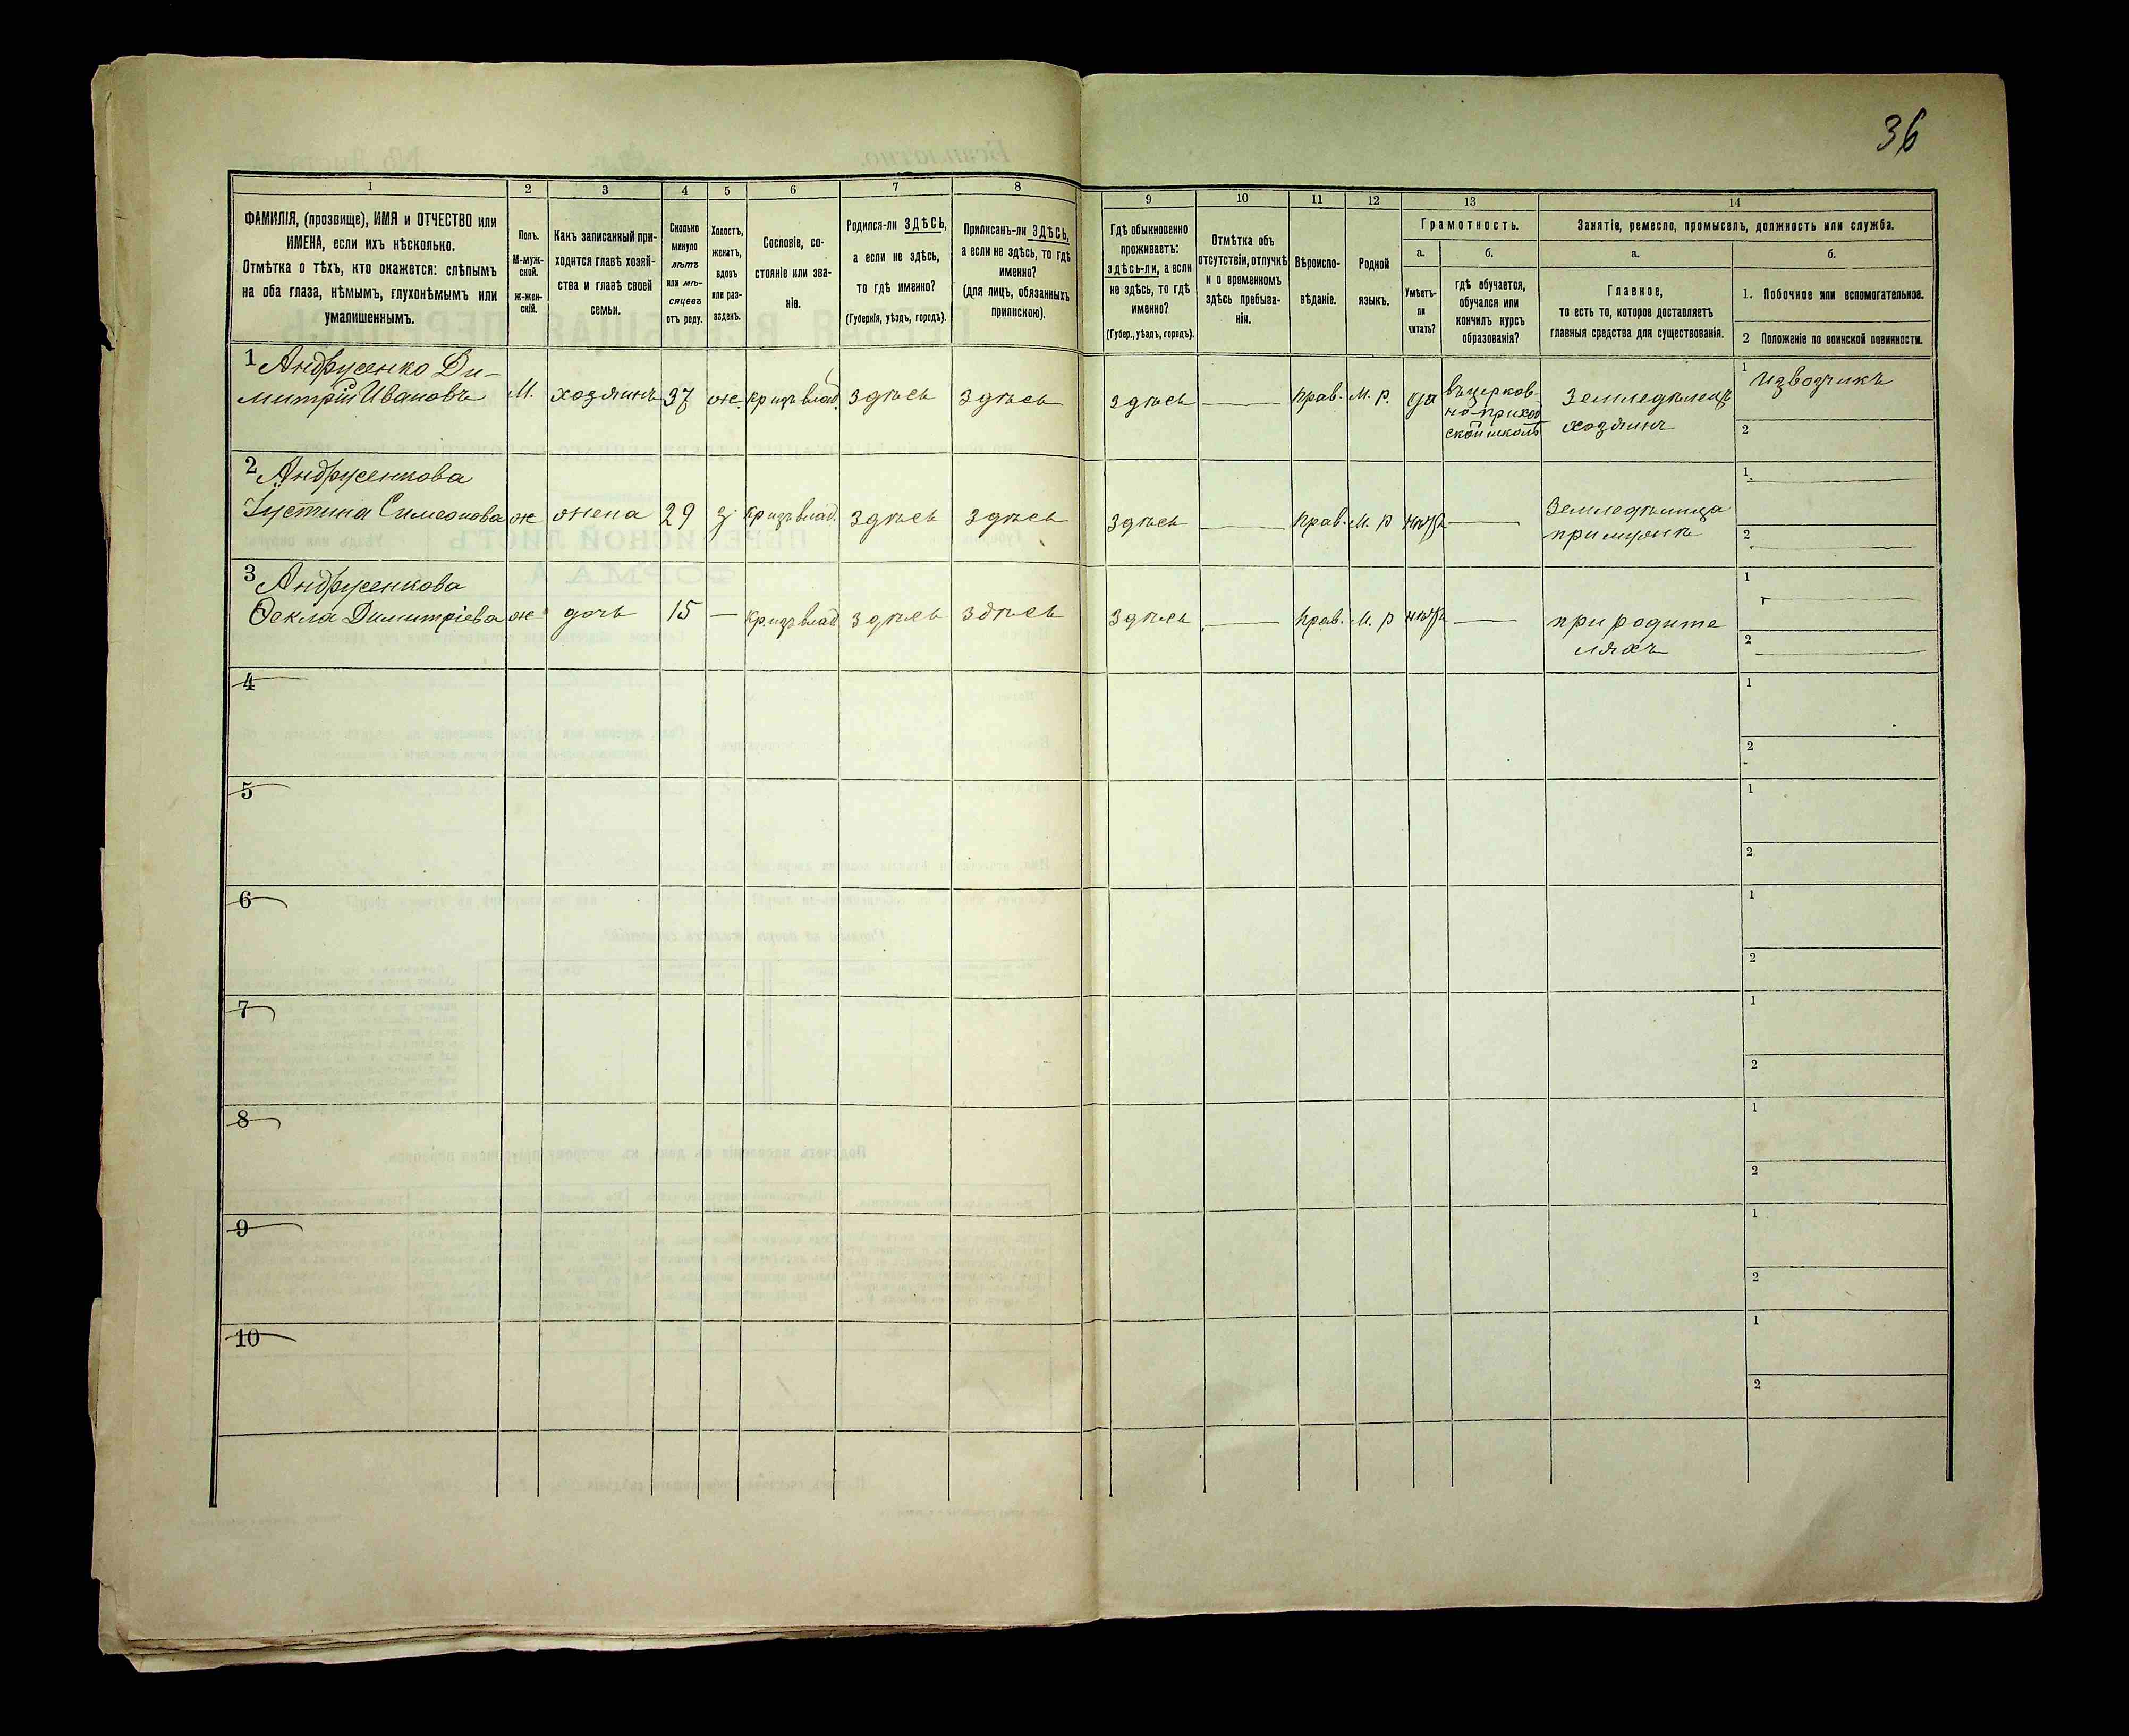 36
1
2
3
4
5
6
7
8
ФАМИЛІЯ, (прозвище), ИМЯ и ОТЧЕСТВО или
ИМЕНА, если ихъ нѣсколько.
Отмѣтка о тѣхъ, кто окажется: слѣпымъ
на оба глаза, нѣмымъ, глухонѣмымъ или
умалишеннымъ.
Полъ.
М-муж-
ской.
ж-жен-
скій.
Какъ записанный при-
ходится главѣ хозяй-
ства и главѣ своей
семьи.
Сколько
минуло
лѣтъ
или мѣ-
сяцевъ
отъ роду.
Холостъ,
женатъ,
вдовъ
или раз-
веденъ.
Сословіе, со-
стояніе или зва-
ніе.
Родился-ли ЗДѢСЬ,
а если не здѣсь,
то гдѣ именно?
(Губернія, уѣздъ, городъ).
Приписанъ-ли ЗДѢСЬ,
а если не здѣсь, то гдѣ
именно?
(для лицъ, обязанныхъ
припискою).
9
10
11
12
13
14
Гдѣ обыкновенно
проживаетъ:
здѣсь-ли, а если
не здѣсь, то гдѣ
именно?
(Губер., уѣздъ, городъ).
Отмѣтка объ
отсутствіи, отлучкѣ
и о временномъ
здѣсь пребыва-
ніи.
Вѣроиспо-
вѣданіе.
Родной
языкъ.
Грамотность.
а.
б.
Умѣетъ-
ли
читать?
гдѣ обучается,
обучался или
кончилъ курсъ
образованія?
Занятіе, ремесло, промыселъ, должность или служба.
а.
б.
Главное,
то есть то, которое доставляетъ
главныя средства для существованія.
1. Побочное или вспомогательное.
2 Положеніе по воинской повинности.
1 Андрусенко Ди-
митрій Ивановъ М. хозяинъ 37 ж. кр.изъ влад. здѣсь здѣсь
здѣсь — прав. М. р. да
въ церков-
но-приход
ской школѣ
Земледѣлецъ
хозяинъ
1 Извозчикъ
2
2 Андрусенкова
Іустина Симеонова ж жена 29 з кр изъ влад. здѣсь здѣсь
здѣсь — Прав. М. р нѣтъ —
Земледѣлица
при мужѣ
1
2
3 Андрусенкова
Ѳекла Димитріева ж дочь 15 — кр.изъ влад здѣсь здѣсь
здѣсь — Прав. М. р нѣтъ —
при родите
ляхъ
1
2
4
1
2
5
1
2
6
1
2
7
1
2
8
1
2
9
1
2
10
1
2